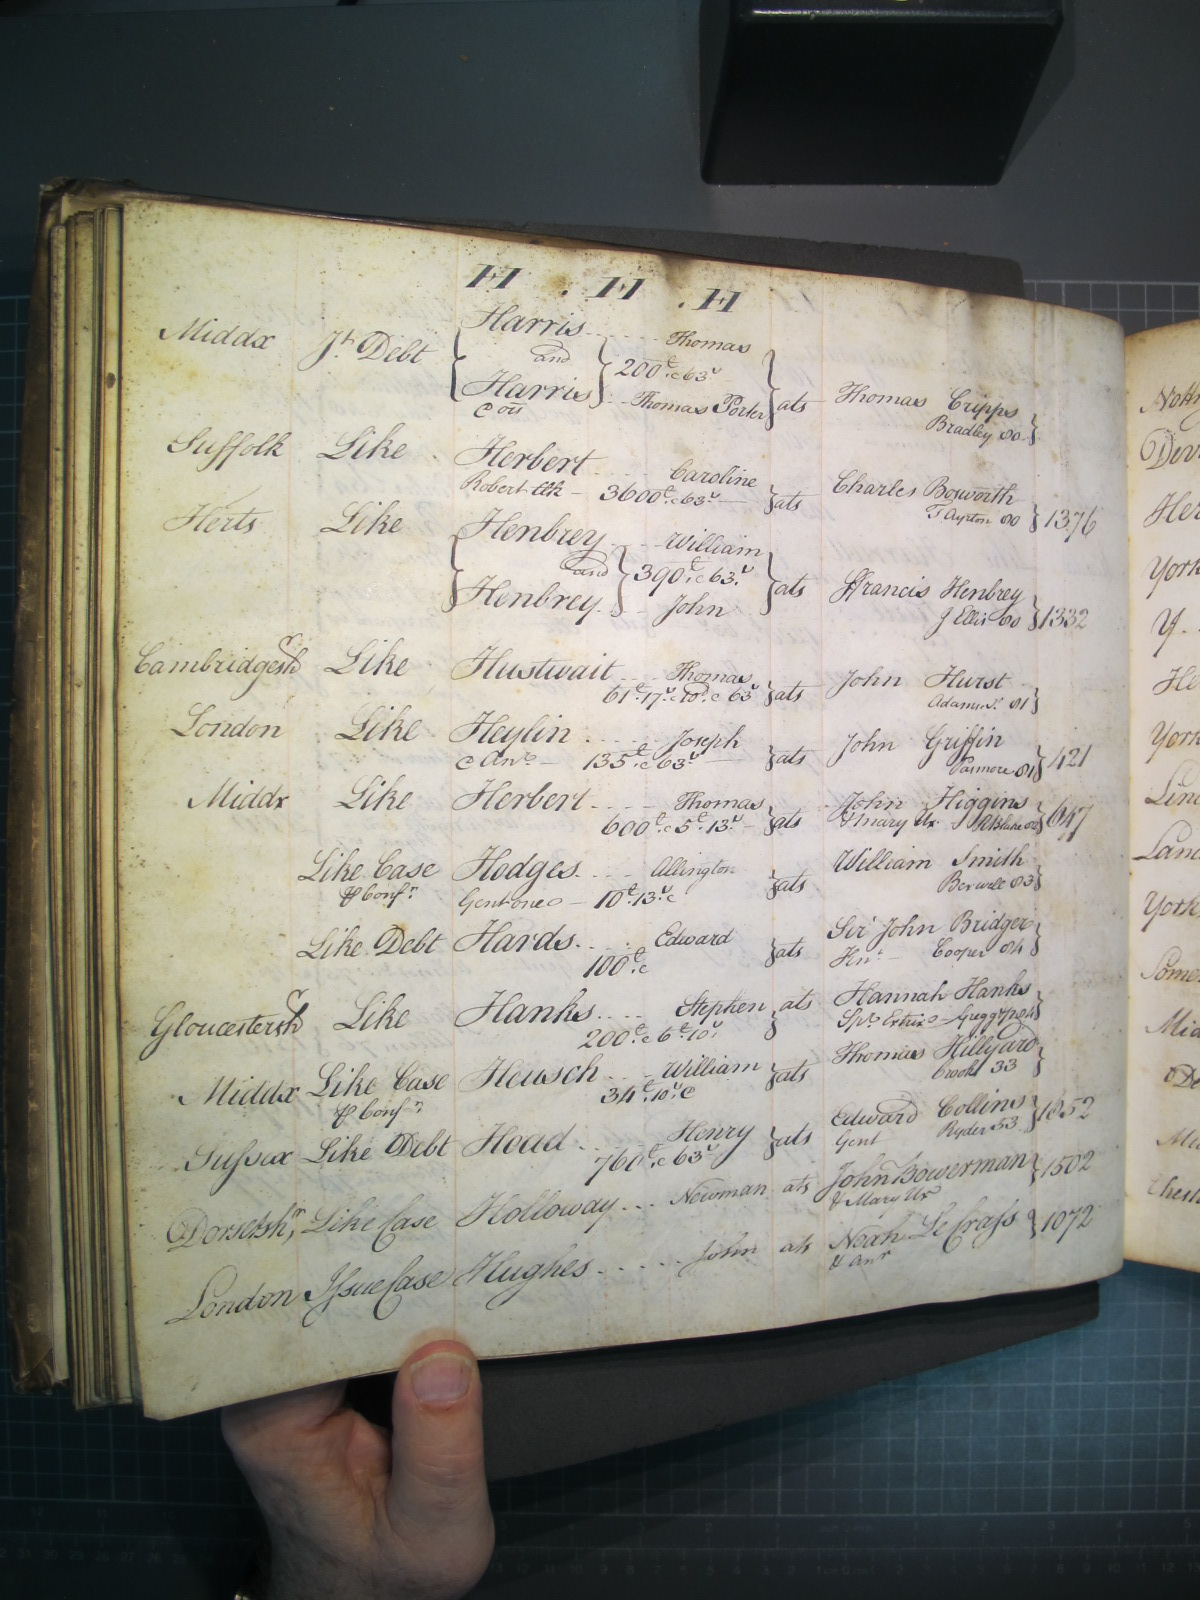 H . H . H
Middx Jt. Debt Harris .... Thomas
and 200£.c63s
Harris .. Thomas Porter } ats Thomas Cripps
c ors Bradley 80
Suffolk Like Herbert .... Caroline
Robert Clk - 3600£.c63s } ats Charles Bosworth
T Ayrton 80 } 1376
Herts Like Henbrey .. William
and 390£.c 63s } ats Francis Henbrey
Henbrey .. John J Ellis 80 } 1332
Cambridgesh Like Hustwait ... Thomas
61£.17s.c10d.c 63s } ats John Hurst
81
London Like Heylin .... Joseph
c Anr - 135£.c63s } ats John Griffin
81 } 421
Middx Like Herbert .... Thomas
600£.c5£.13s - } ats John Higgins
& Mary Ux } 647
Like Case Hodges .... Allington
& Conf n Gent one - 10£.13s.c } ats William Smith
83
Like Debt Hards .... Edward
100£.c } ats Sir John Bridger
Knt - Cooper 84
Gloucestersh Like Hanks .... Stephen ats Hannah Hanks
200£.c6£.10s
Middx Like Case Heusch ... William
& Conf n 34£.10s.c } ats Thomas Hillyard
Crook 33
Sussex Like Debt Hoad .. Henry
760£.c63s } ats Edward Collins
Gent Ryder 53 } 1052
Dorsetshr, Like Case Holloway ... Newman ats John Bowerman } 1502
& Mary Ux
London Issue Case Hughes ..... John ats Noah Le Crass } 1072
& Anr
Nott
Dev
Her
York
Y..
He
York
Linc
Lanc
York
Somer
Mid
De
Mid
Chesh